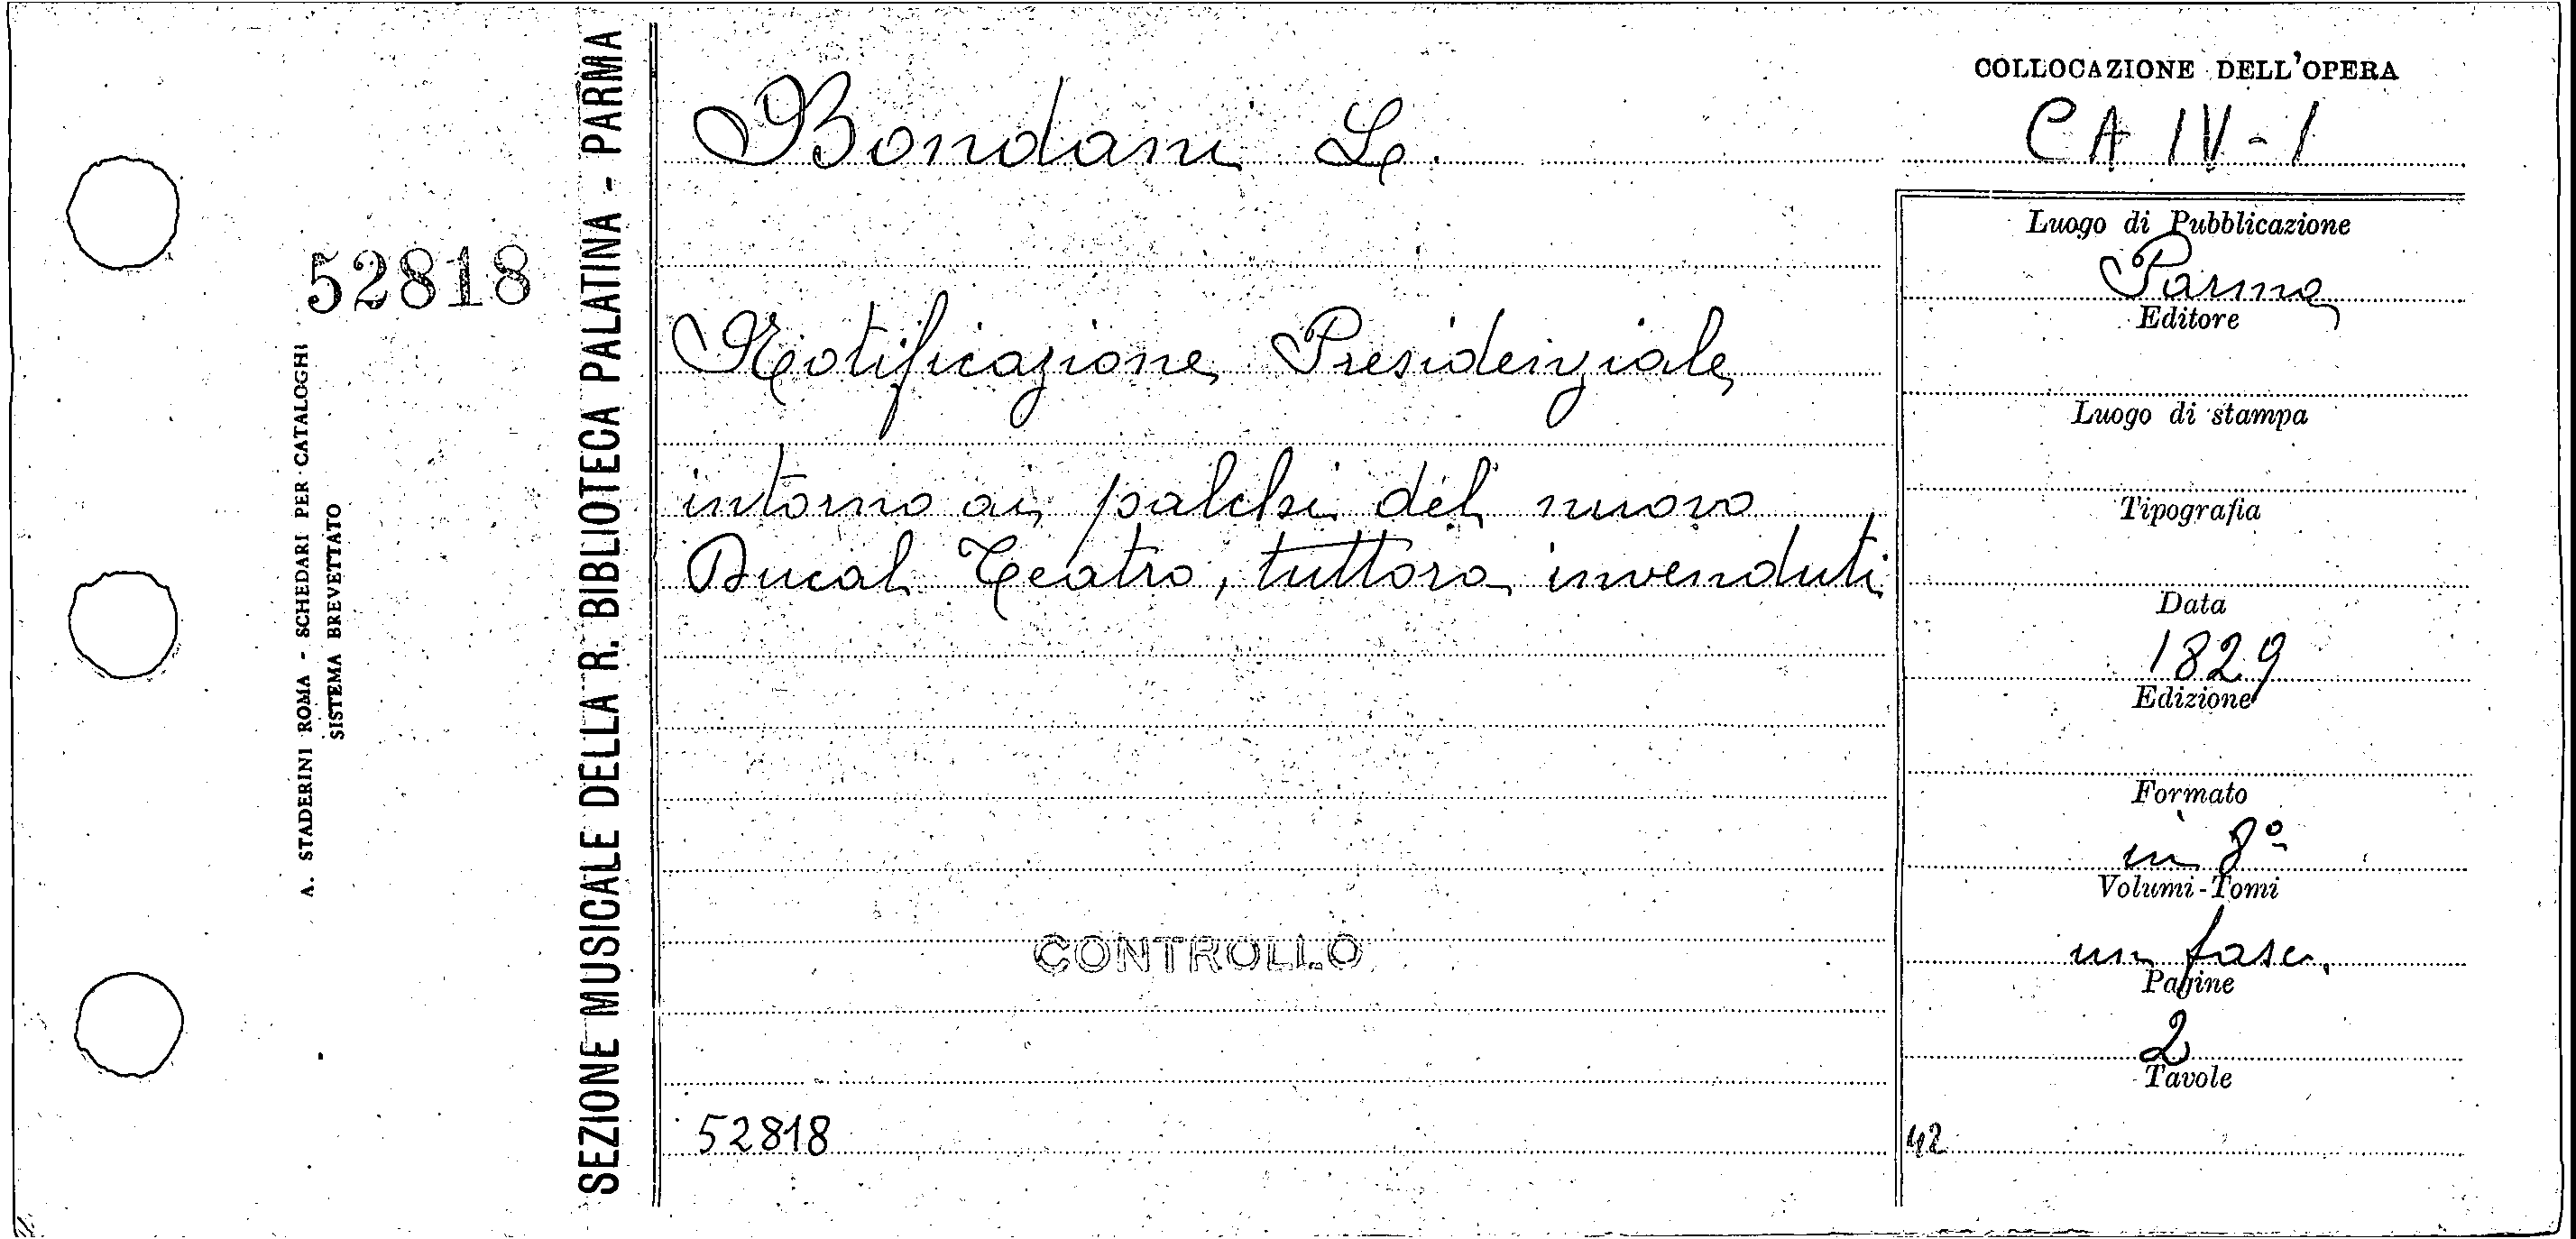 52818
A. STADERINI ROMA - SCHEDARI PER CATALOGHI
SISTEMA BREVETTATO
SEZIONE MUSICALE DELLA R. BIBLIOTECA PALATINA - PARMA
Bondani L.
Notificazione Presidenziale
intorno ai palchi del nuovo
Ducal Teatro, tuttora invenduti
CONTROLLO
52818
COLLOCAZIONE DELL'OPERA
CA IV-1
Luogo di Pubblicazione
Parma
Editore
Luogo di stampa
Tipografia
Data
1829
Edizione
Formato
in 8º
Volumi-Tomi
un fasc.
Pagine
2
Tavole
42